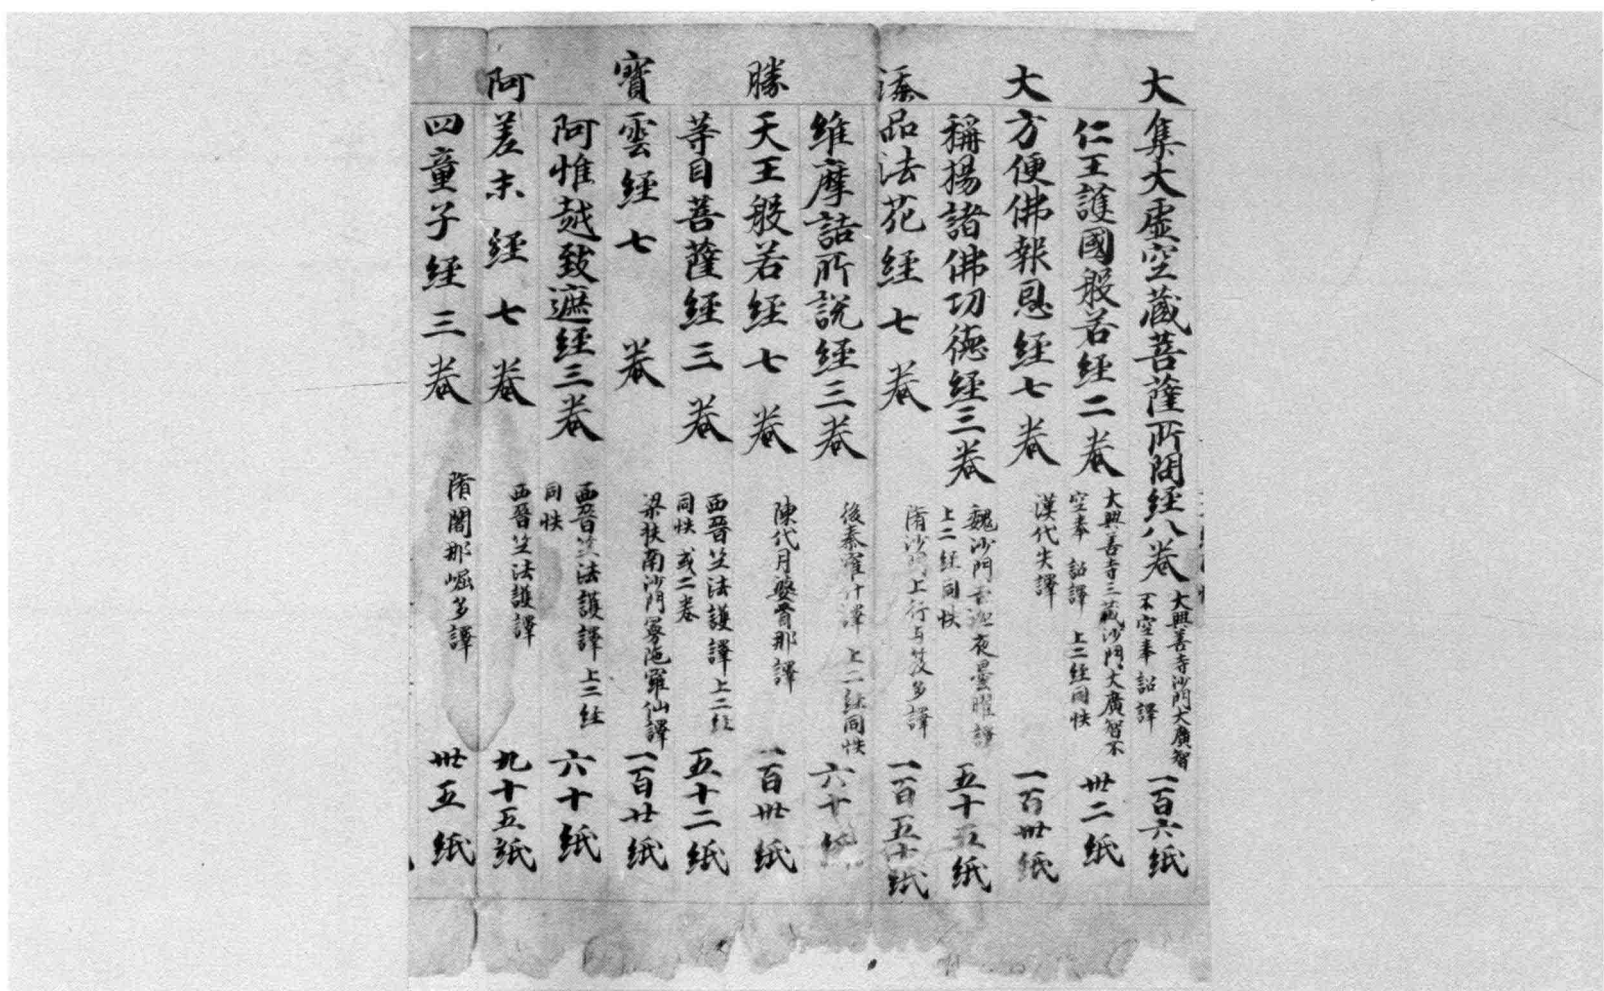 大集大虛空藏菩薩所問經八卷 大興善寺沙門大廣智不空奉 詔譯 一百六紙
仁王護國般若經二卷 大興善寺三藏沙門大廣智不空奉 詔譯 上二經同帙 卅二紙
大方便佛報恩經七卷 漢代失譯 一百卅紙
稱揚諸佛功德經三卷 魏沙門吉迦夜曇曜譯 上二經同帙 五十五紙
添品法花經七卷 隋沙門上行与笈多譯 一百五十紙
維摩詰所說經三卷 後秦羅什譯 上二經同帙 六十紙
勝天王般若經七卷 陳代月婆首那譯 一百卅紙
等目菩薩經三卷 西晉竺法護譯 上二經同帙 或二卷 五十二紙
寶雲經七卷 梁扶南沙門曼陁羅仙譯 一百廿紙
阿惟越致遮經三卷 西晉竺法護譯 上二經同帙 六十紙
阿差末經七卷 西晉竺法護譯 九十五紙
四童子經三卷 隋闍那崛多譯 卅五紙